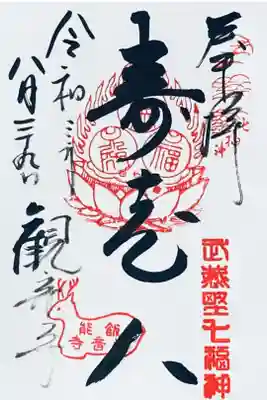 奉拝
武蔵野七福神
福
寿老人
飯能
観音寺
令和三年
八月二十九日
観音寺